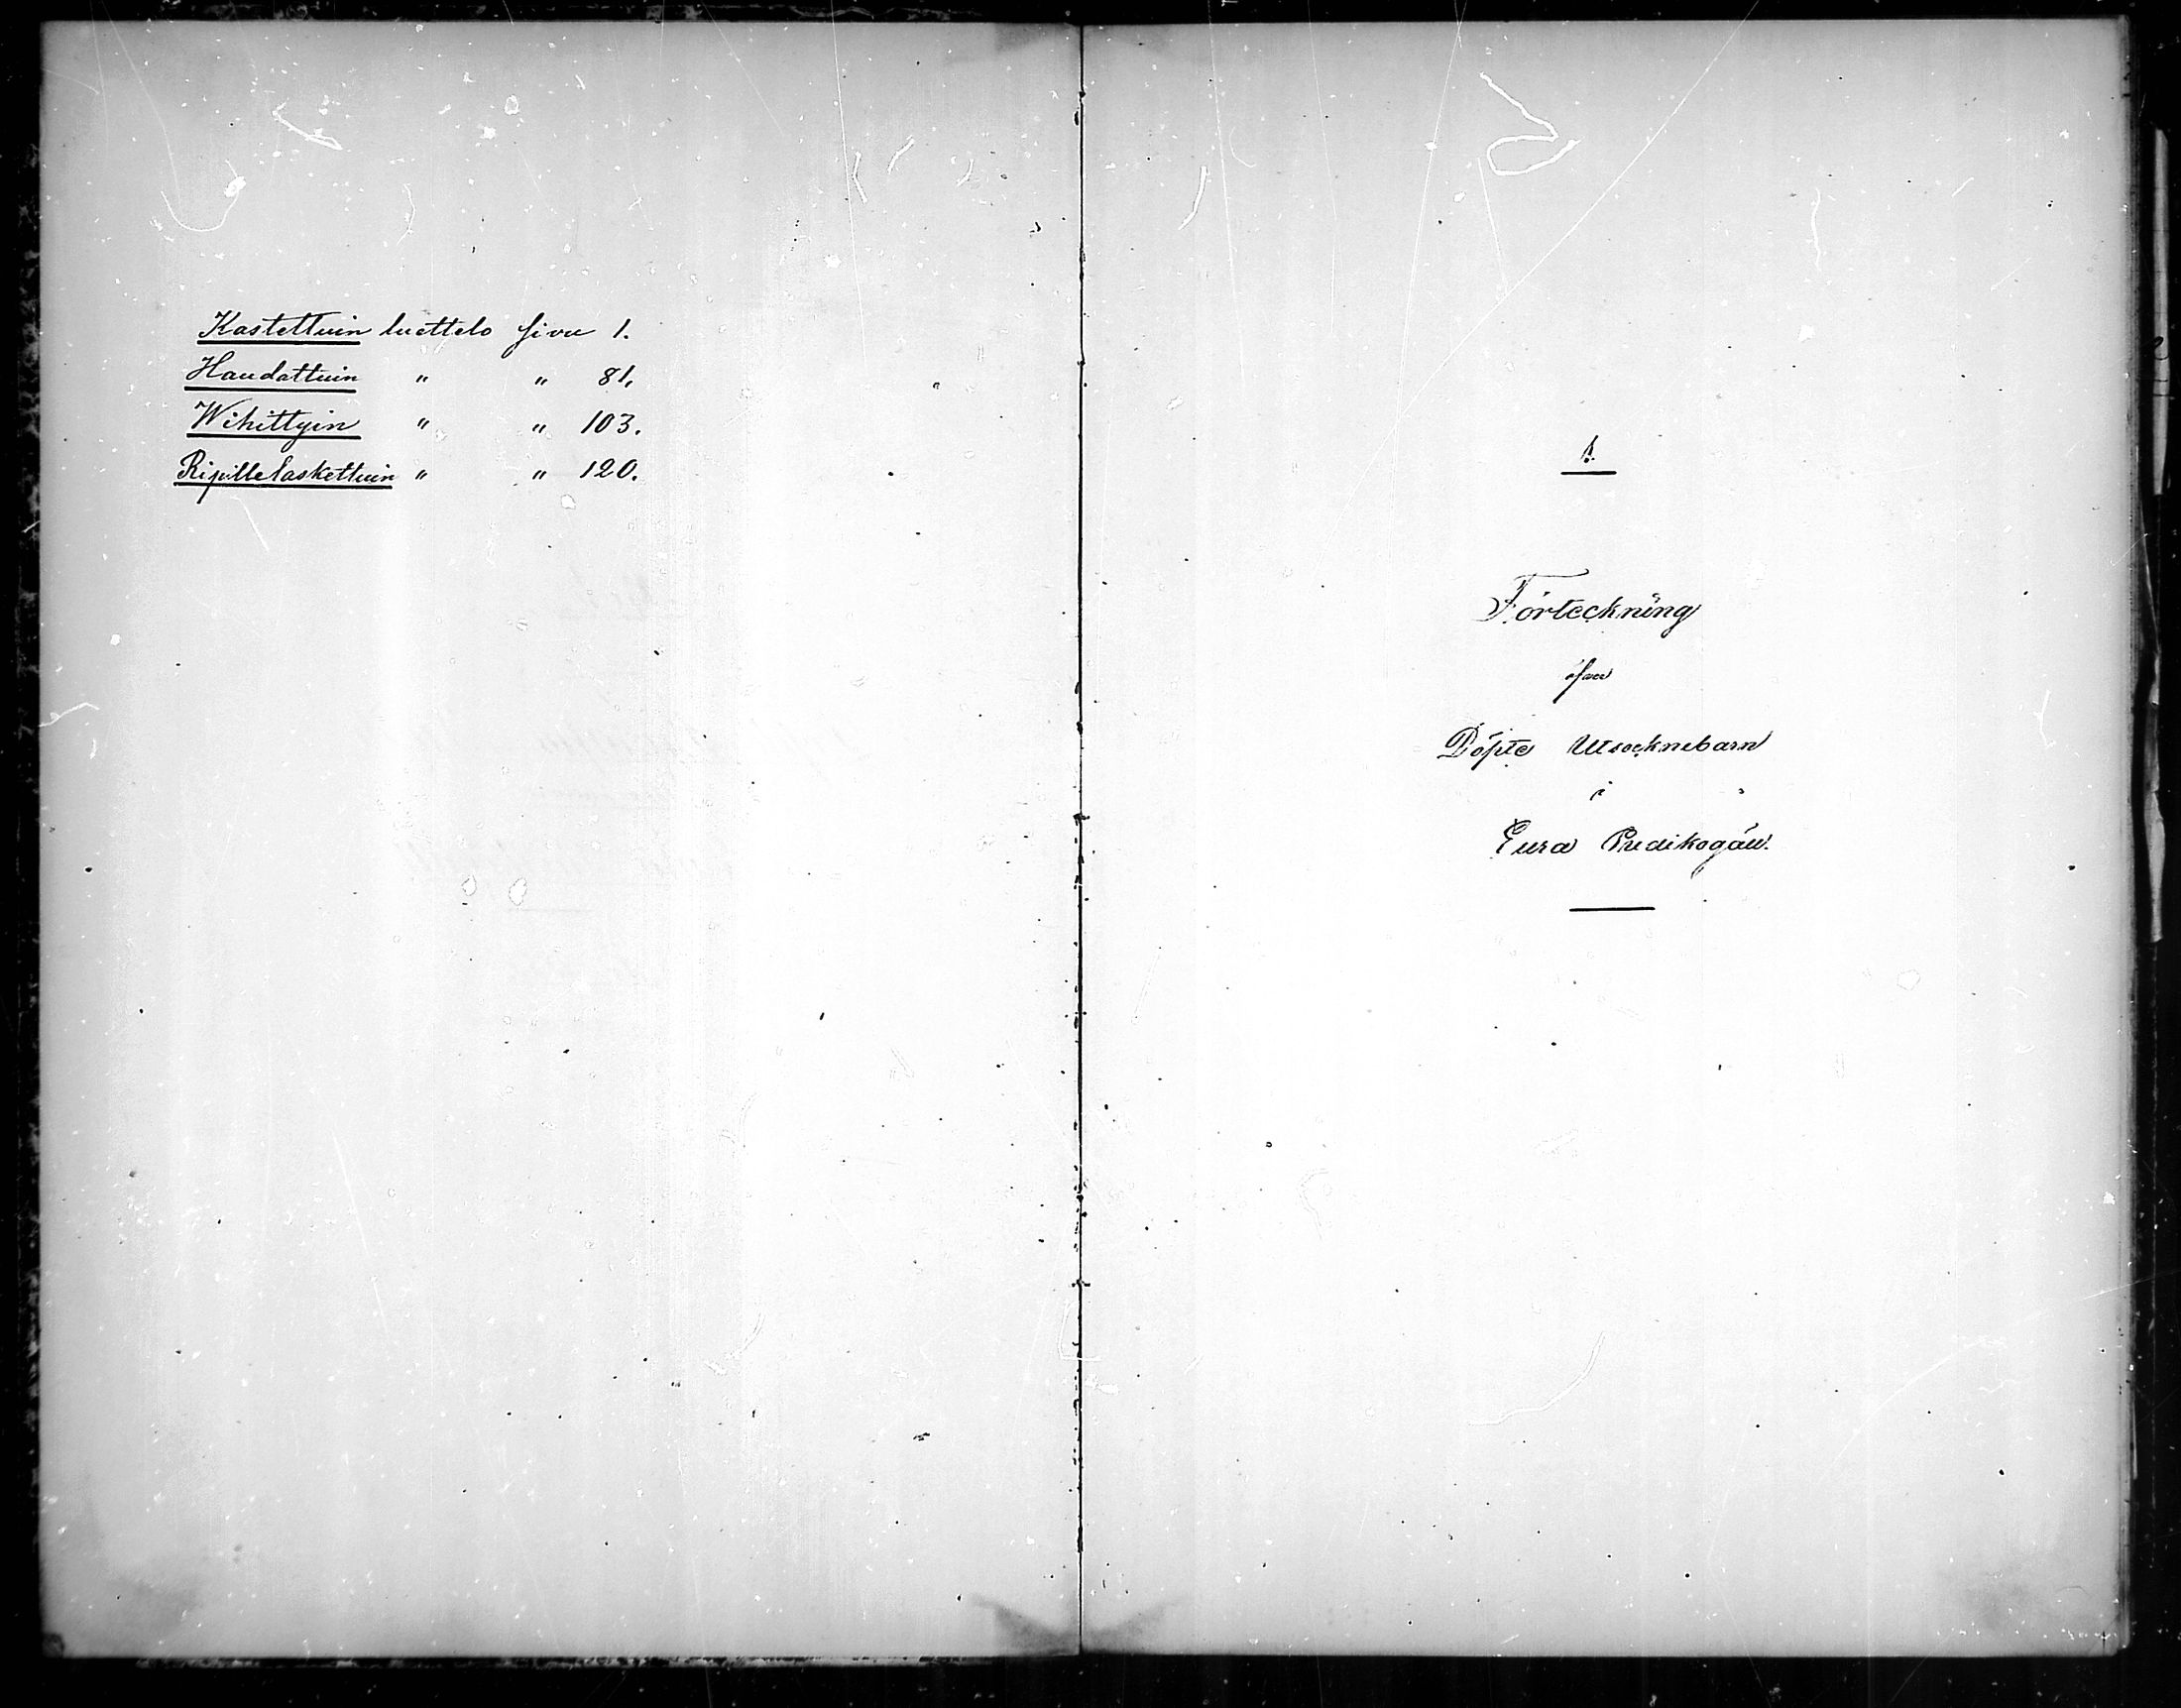 Kastettuin luettelo sivu 1.
Haudattuin " " 81.
Wihittyin " " 103.
Ripillelaskettuin " " 120.
1.
Förteckning
öfver
Döpte Utsocknebarn
i
Eura Predikogäll.